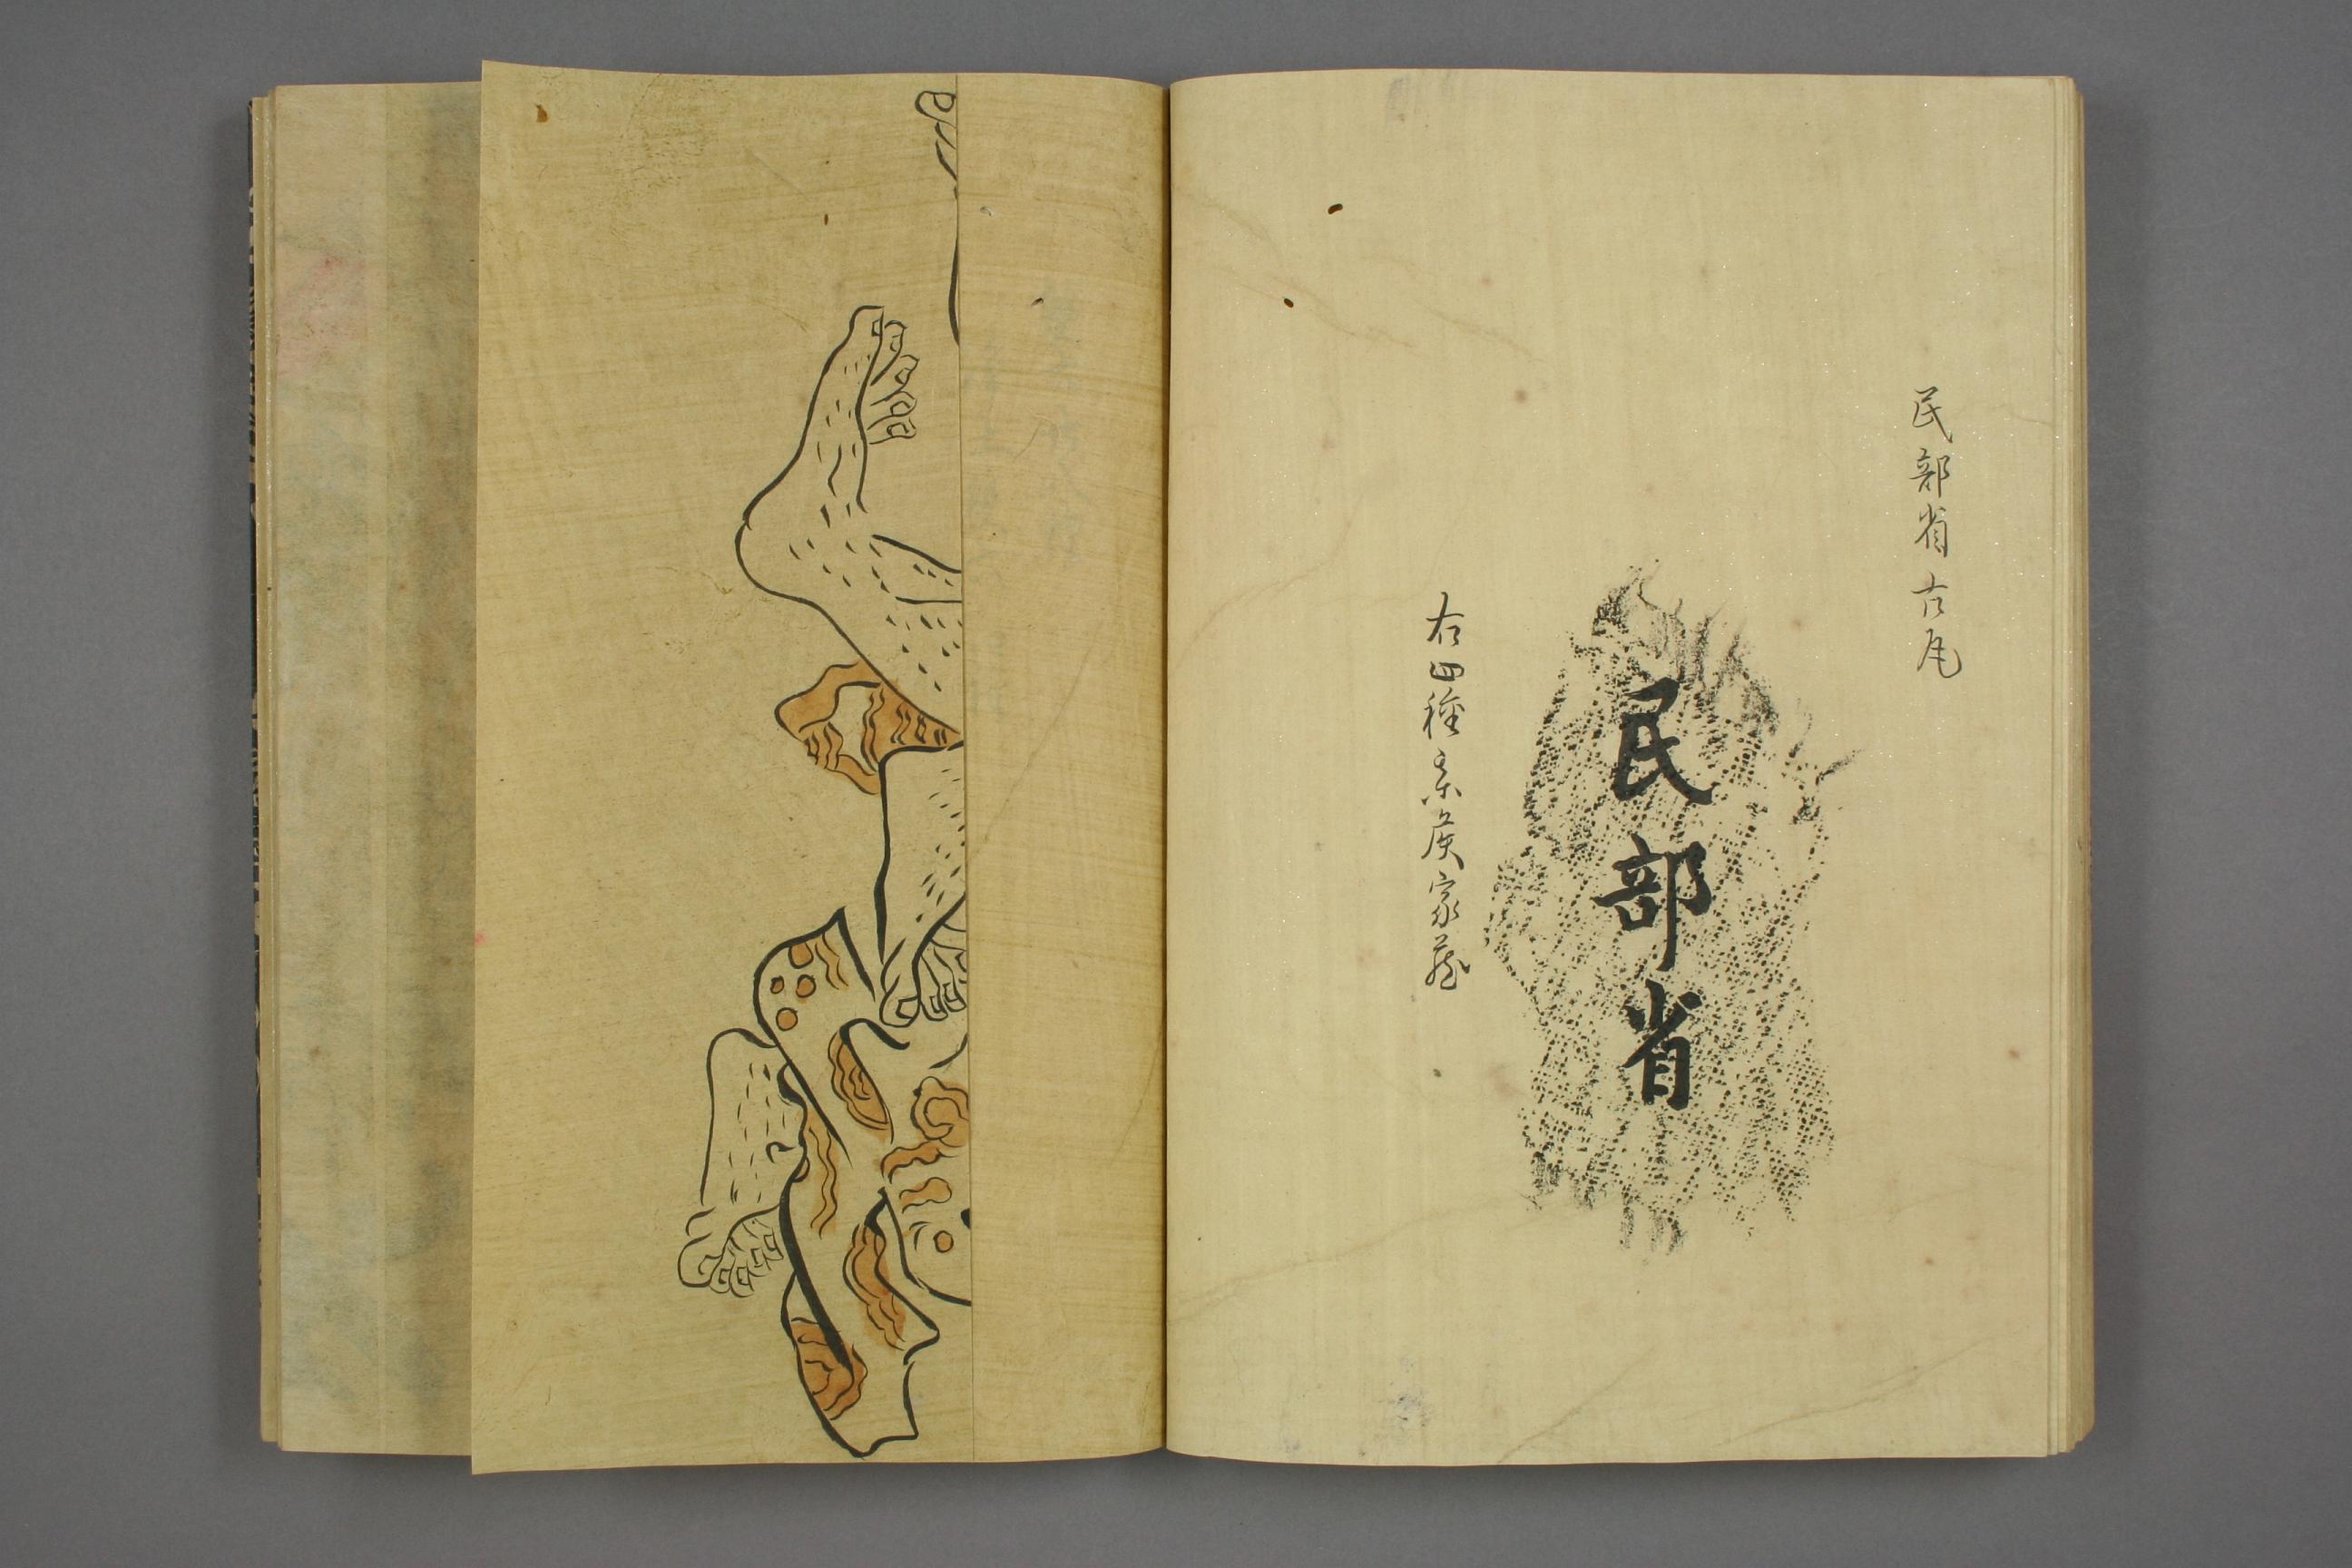 民部省古瓦
民部省
右四種桑侯家蔵